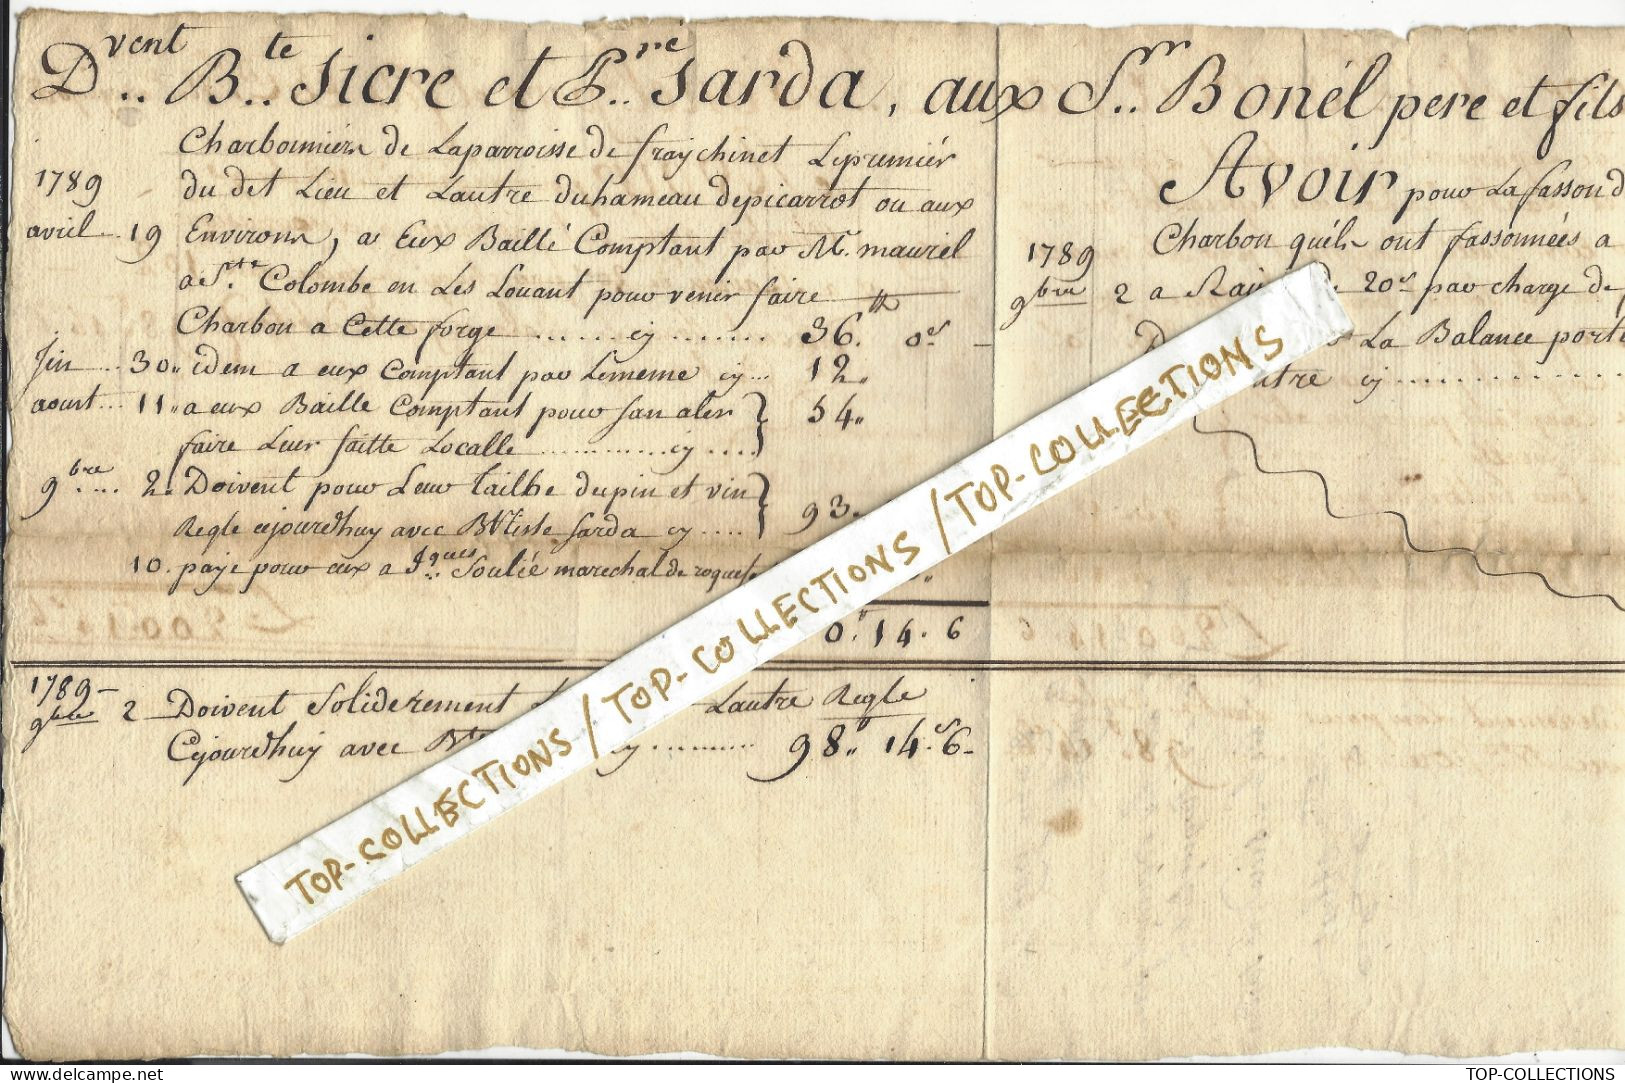 Dvent.. Bte.. Sicre et Pre.. Sarda, aux Srs.. Bonél pere et fils
Charbonniérs de Laparroisse de fraychinet Lepremiér
1789 du det Lieu et Lautre duhameau depicarrot ou aux
avril.. 19 Environs, a Eux Baillé Comptant par Mr. mauriel
a Ste. Colombe en Les Louant pour venir faire
Charbon a Cette forge ........ cy ........ 36.tt 0s
Jin... 30.. idem a eux Comptant par Lememe cy... 12..
aoust... 11.. a eux Baille Comptant pour san aler
faire Leur faitte Localle ............ cy .... 54..
9bre.... 2.. Doivent pour Leur tailhe dupin et vin
Regle cejourdhuy avec Btiste Sarda cy .... 93..
10. paye pour eux a Jques.. Soulié marechal de roquef
0.. 14. 6
1789 -
9bre 2 Doivent Soliderement Lautre Regle
Cejourdhuy avec cy .......... 98.. 14.s 6 -
Avoir pour La fasson d
1789 Charbon quéls ont fassonnées a
9bre 2 a 20s par charge de
La Balance port
utre cy ..............
TOP-COLLECTIONS / TOP-COLLECTIONS / TOP-COLLECTIONS
www.delcampe.net
TOP-COLLECTIONS